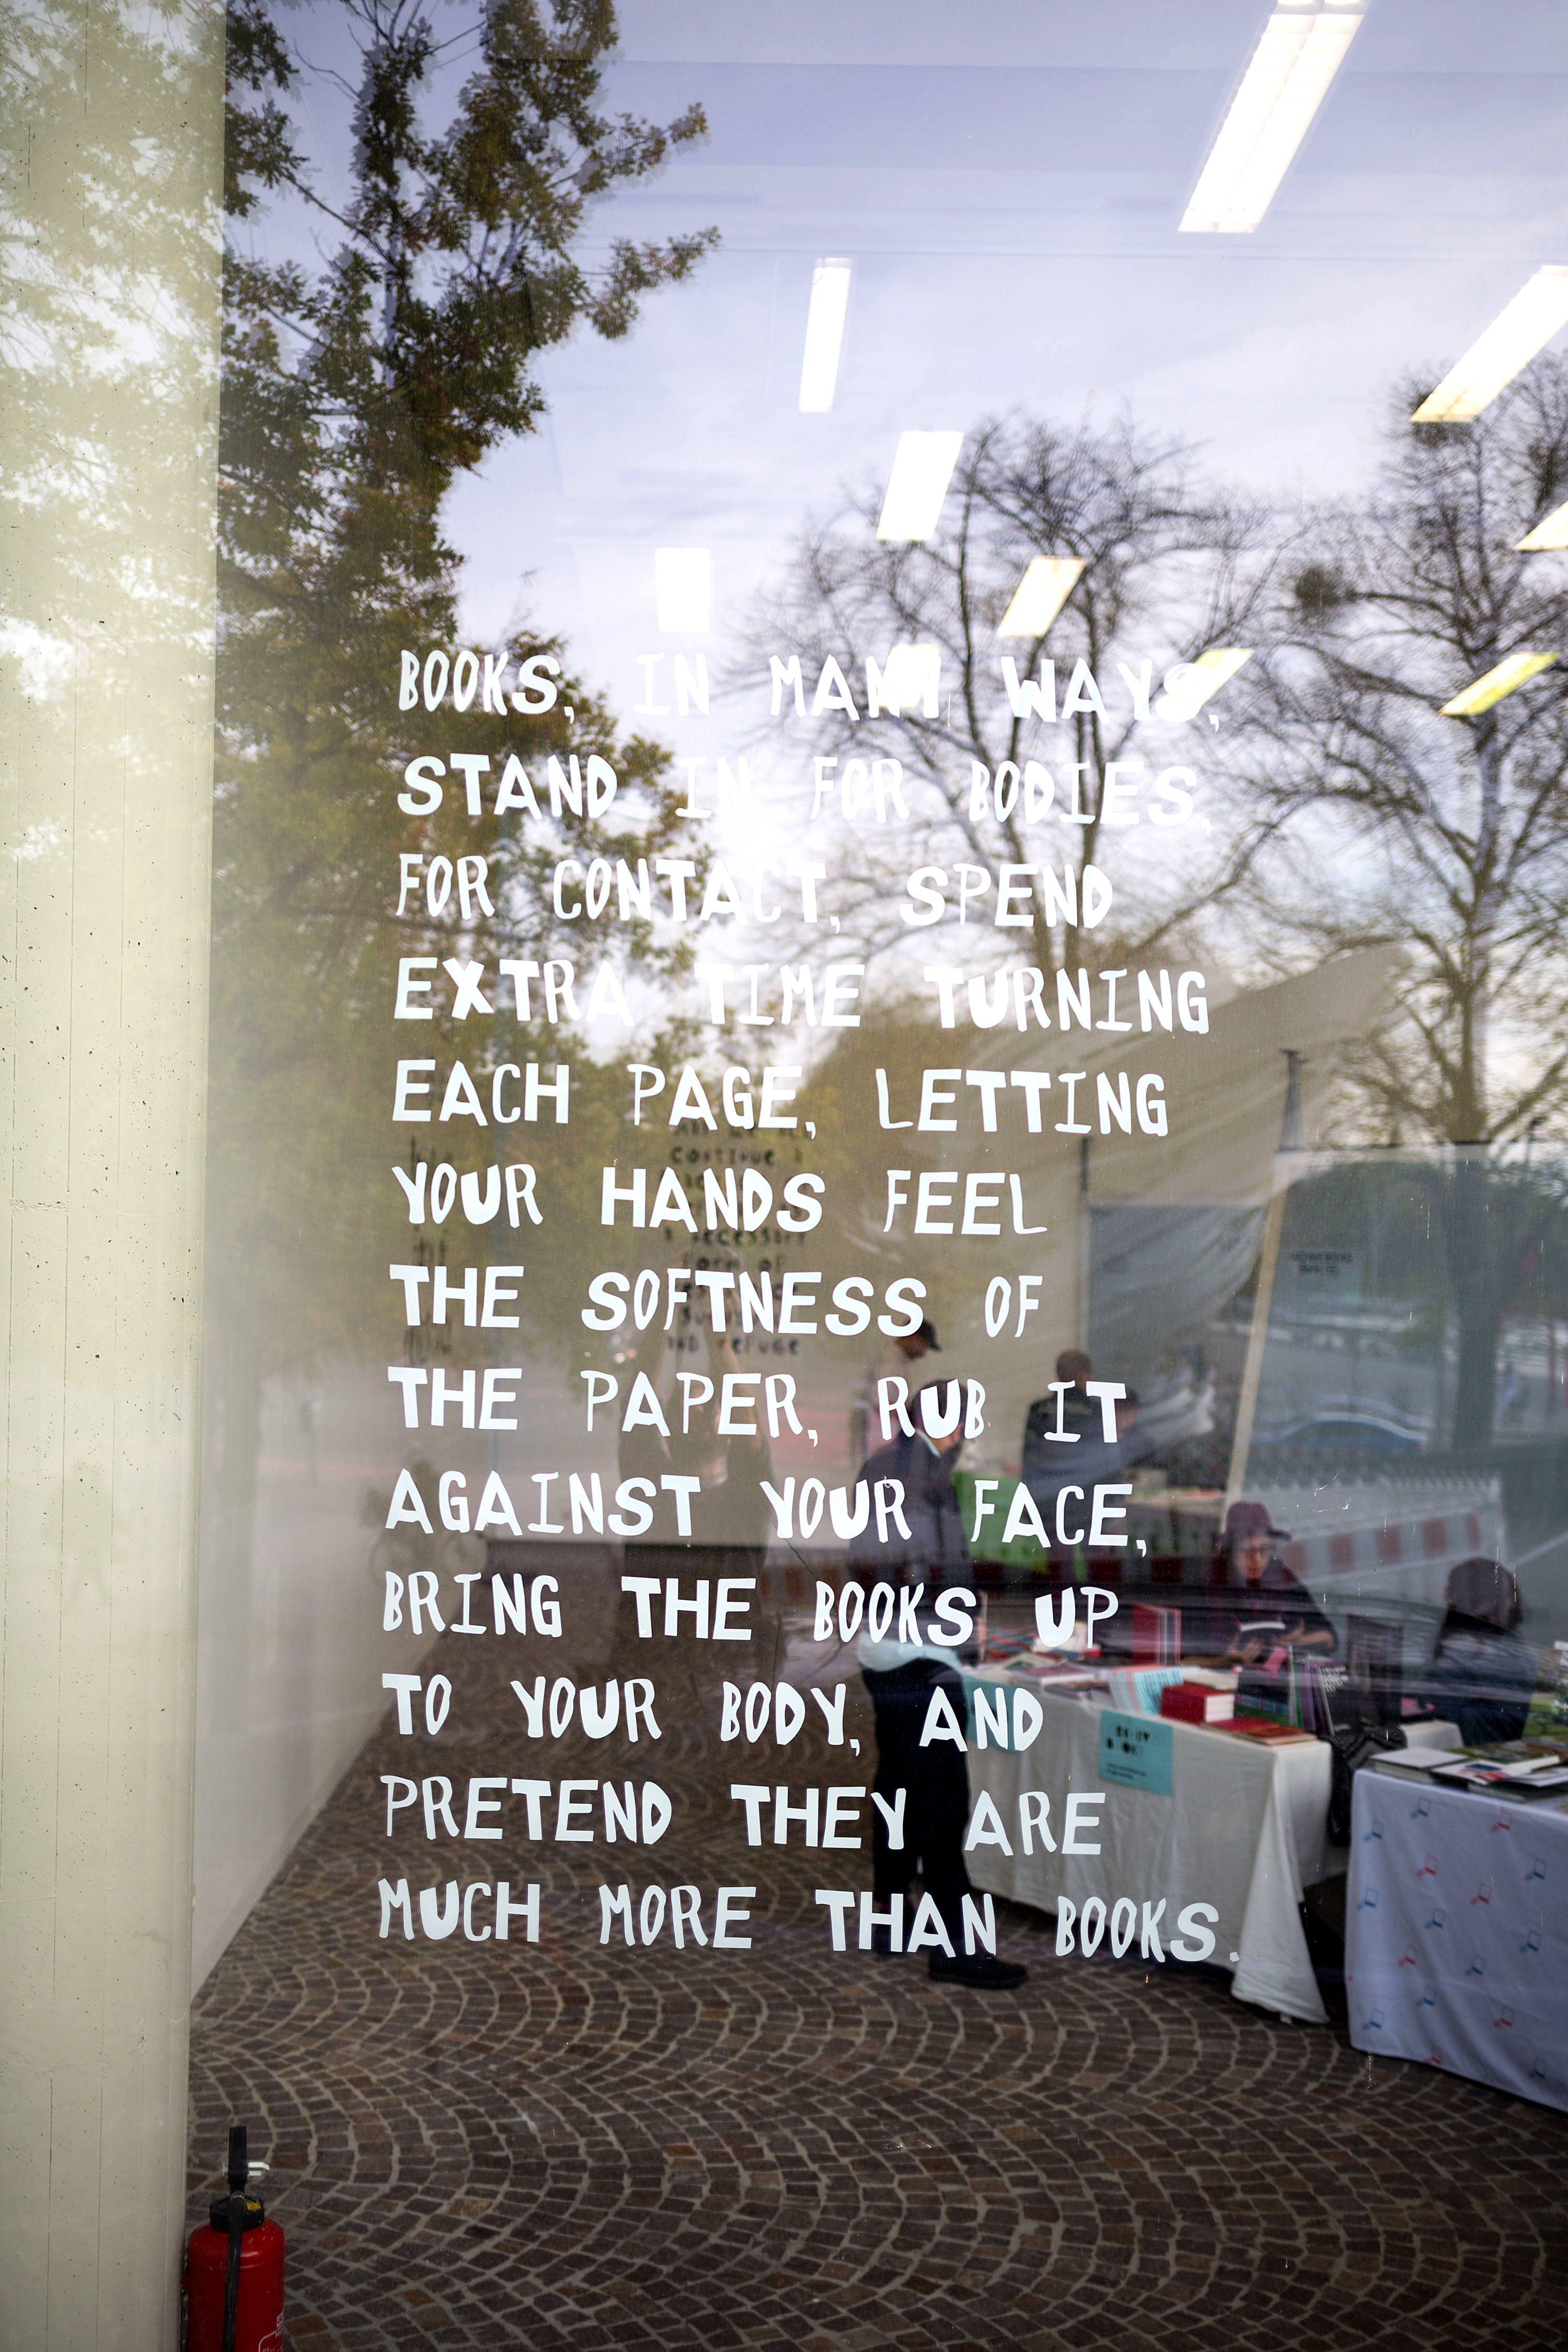 BOOKS, IN MANY WAYS,
STAND IN FOR BODIES,
FOR CONTACT, SPEND
EXTRA TIME TURNING
EACH PAGE, LETTING
YOUR HANDS FEEL
THE SOFTNESS OF
THE PAPER, RUB IT
AGAINST YOUR FACE,
BRING THE BOOKS UP
TO YOUR BODY, AND
PRETEND THEY ARE
MUCH MORE THAN BOOKS.
continue
form of
AND refuge